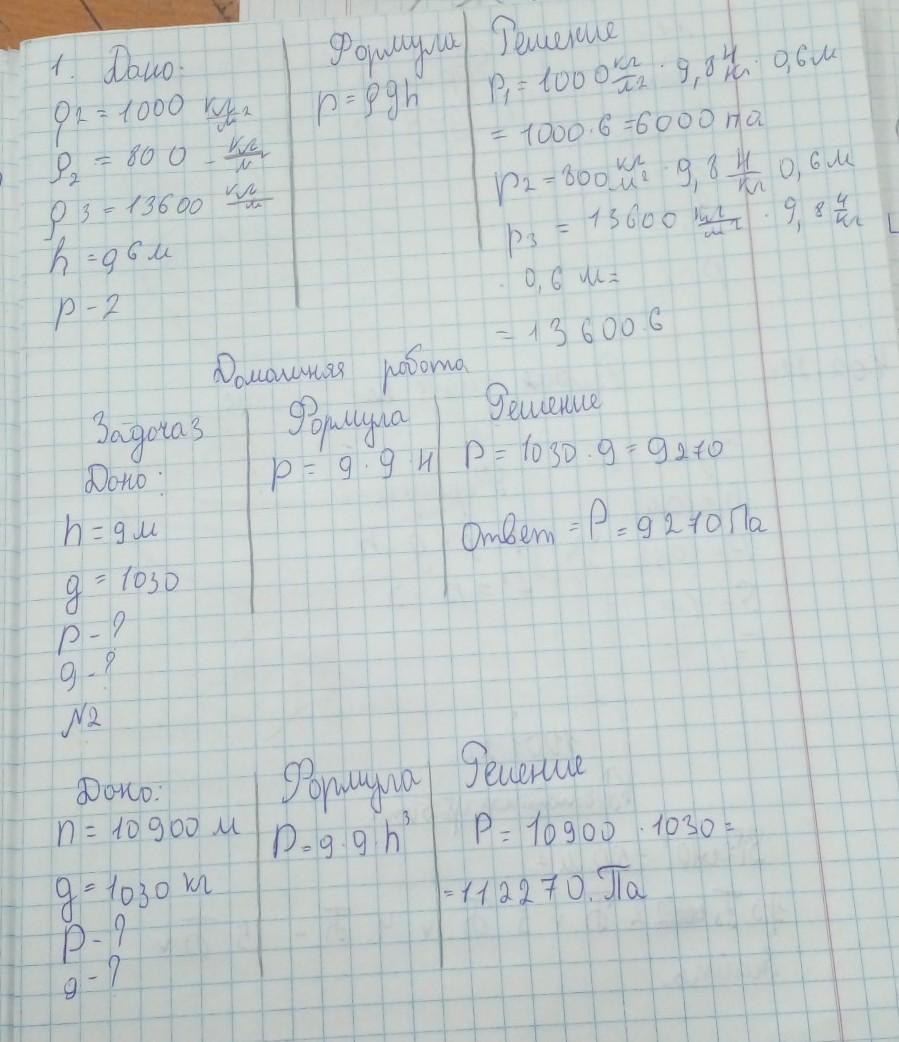 1. Дано:
ρ2 = 1000 кг/м2
ρ2 = 800 кг/м
ρ3 = 13600 кг/м
h = 96 м
p - 2
Формула
p = ρgh
Решение
P1 = 1000 кг/м2 · 9,8 Н/кг · 0,6 м
= 1000·6 = 6000 па
p2 = 800 кг/м2 · 9,8 Н/кг 0,6 м
p3 = 13600 кг/м2 · 9,8 Н/кг
· 0,6 м =
= 13600 6
Домашняя робота
Задоча 3
Доно:
h = 9 м
g = 1030
P - ?
g - ?
Формула
p = g · g · н
Решение
P = 1030 · 9 = 9270
Ответ = P = 9270 Па
№2
Доно:
n = 10900 м
g = 1030 кг
P - ?
g - ?
Формула
P = g · g · h3
Решение
P = 10900 · 1030 =
= 112270. Па